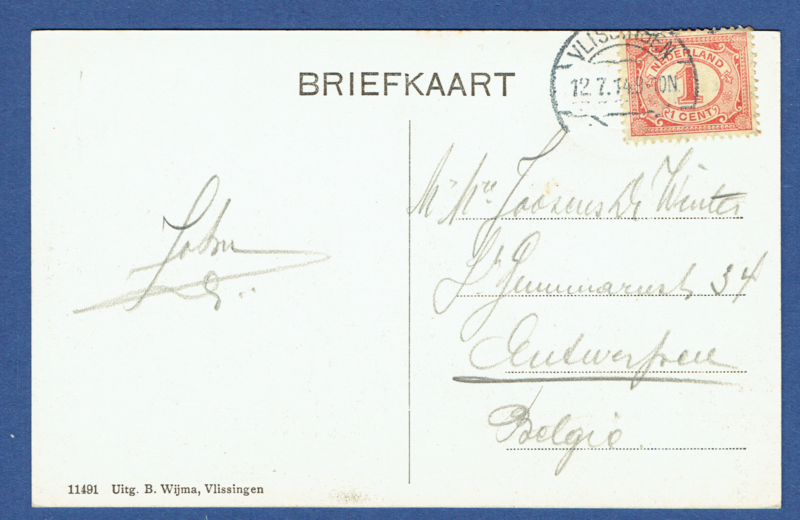 BRIEFKAART
VLISSINGEN
12.7.14.9-10N.
NEDERLAND
1
1 CENT
Mr Mee Joosens De Winter
St Gummarusst 34
Antwerpen
België
John
11491 Uitg. B. Wijma, Vlissingen